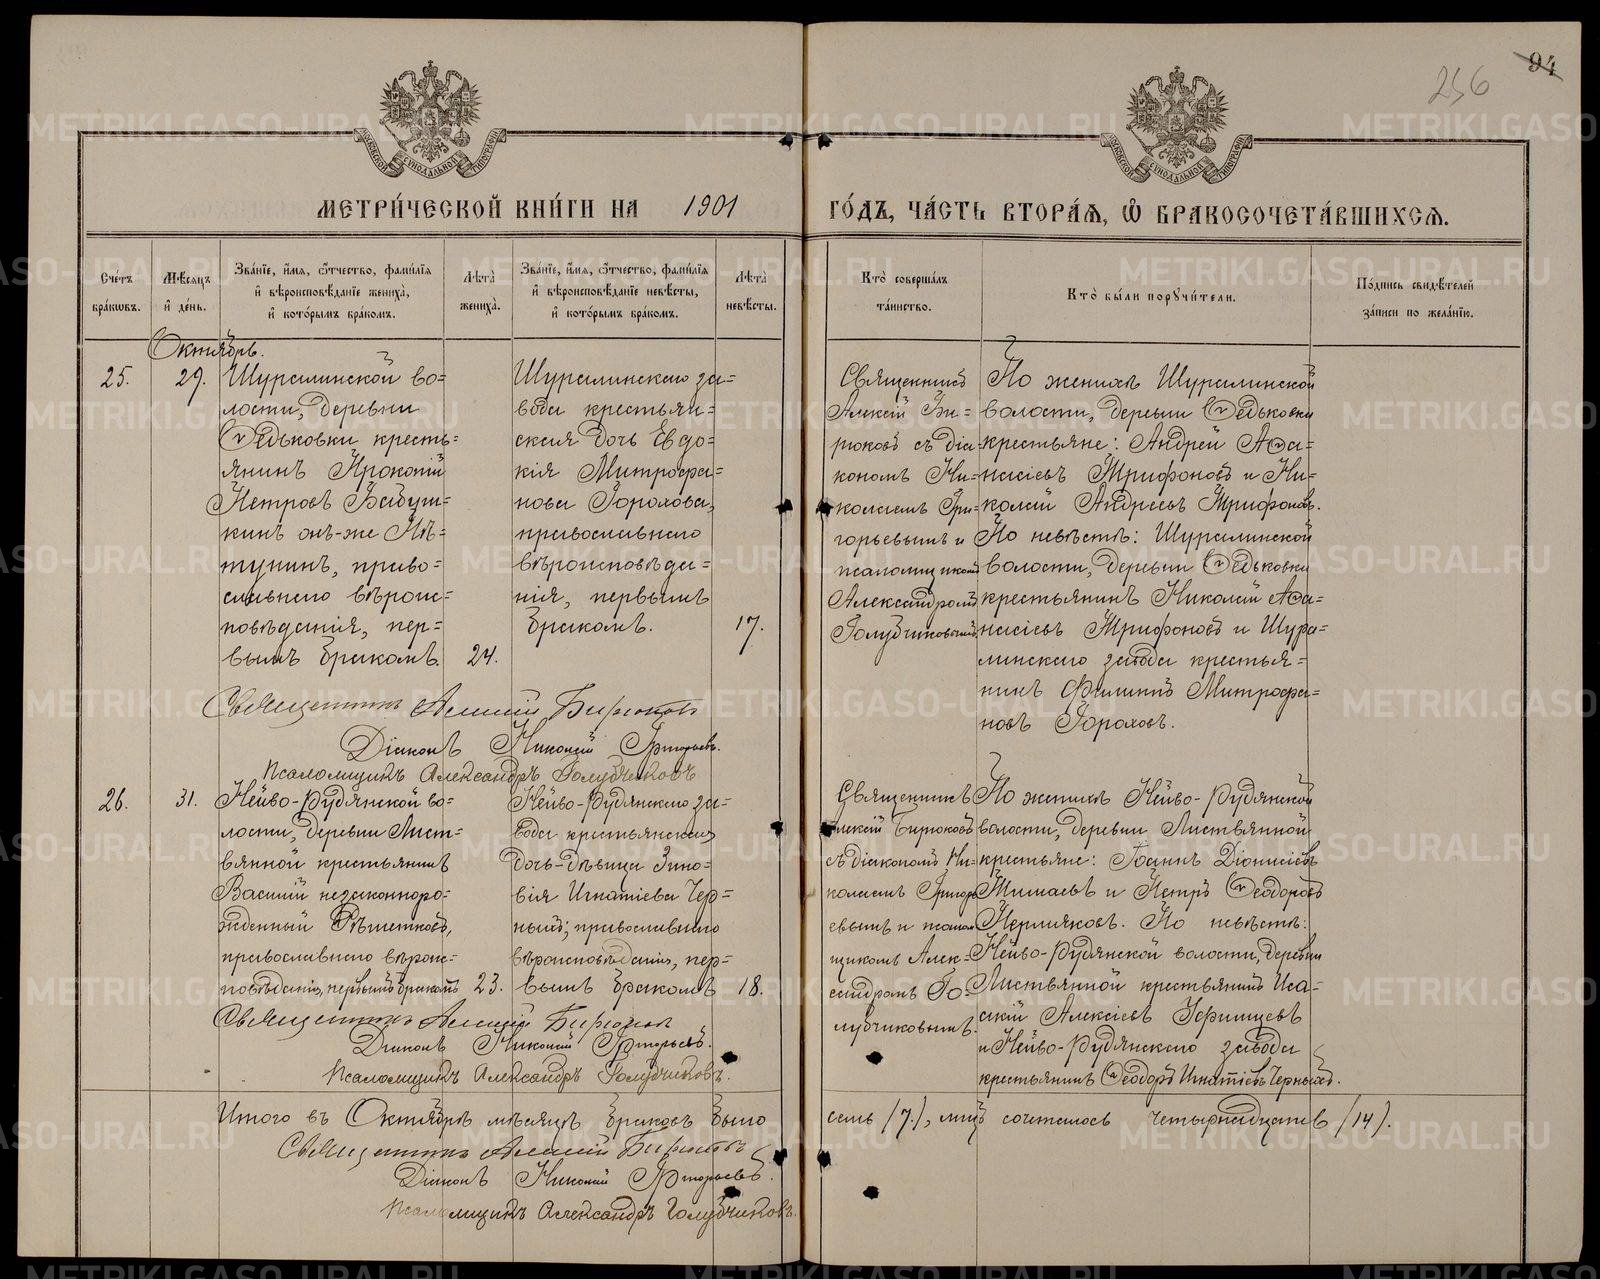 94
256
МОСКОВСКОЙ СѴНОДАЛЬНОЙ ТИПОГРАФІИ
МОСКОВСКОЙ СѴНОДАЛЬНОЙ ТИПОГРАФІИ
МЕТРИ́ЧЕСКОЙ КНИ́ГИ НА 1901 ГО́ДЪ, ЧА́СТЬ ВТОРА́Ѧ, Ѡ҆ БРАКОСОЧЕТА́ВШИХСѦ.
Сче́тъ бра́кѡвъ.
Мѣ́сѧцъ и҆ де́нь.
Зва́нїе, и҆́мѧ, ѻ҆́тчество, фами́лїѧ и҆ вѣроисповѣ́данїе жениха̀, и҆ кото́рымъ бра́комъ.
Лѣ́та̀ жениха̀.
Зва́нїе, и҆́мѧ, ѻ҆́тчество, фами́лїѧ и҆ вѣроисповѣ́данїе невѣ́сты, и҆ кото́рымъ бра́комъ.
Лѣ́та̀ невѣ́сты.
Кто̀ соверша́лъ та́инство.
Кто̀ бы́ли порꙋчи́тели.
По́дпись свидѣ́телей за́писи по жела́нїю.
Октябрь.
25.
29.
Шуралинской во=
лости, деревни
Ѳедьковки кресть=
янинъ Прокопій
Петровъ Бабуш=
кинъ онъ-же Пѣ=
тунинъ, право=
славнаго вѣроис=
повѣданія, пер=
вымъ бракомъ.
24.
Шуралинскаго за=
вода крестьян=
ская дочь Евдо=
кія Митрофа=
нова Горохова,
православнаго
вѣроисповѣда=
нія, первымъ
бракомъ.
17.
Священникъ
Алексій Би=
рюковъ съ діа
кономъ Ни=
колаемъ Гри=
горьевымъ и
псаломщикомъ
Александромъ
Голубчиковымъ.
По женихѣ Шуралинской
волости, деревни Ѳедьковки
крестьяне: Андрей Аѳа=
насіевъ Трифоновъ и Ни=
колай Андреевъ Трифоновъ.
По невѣстѣ: Шуралинской
волости, деревни Ѳедьковки
крестьянинъ Николай Аѳа=
насіевъ Трифоновъ и Шура=
линскаго завода крестья=
нинъ Филиппъ Митрофа=
новъ Гороховъ.
Священникъ Алексій Бирюковъ
Діаконъ Николай Григорьевъ.
Псаломщикъ Александръ Голубчиковъ
26.
31.
Нейво-Рудянской во=
лости, деревни Лист=
вянной крестьянинъ
Василій незаконноро=
жденный Рѣшетковъ,
православнаго вѣроис=
повѣданія, первымъ бракомъ
23.
Нейво-Рудянскаго за=
вода крестьянская
дочь-дѣвица Зино=
вія Игнатіева Чер=
ныхъ; православнаго
вѣроисповѣданія, пер=
вымъ бракомъ
18.
Священникъ
Алексій Бирюковъ
съ діакономъ Ни=
колаемъ Григорь
евымъ и псалом
щикомъ Алек=
сандромъ Го=
лубчиковымъ.
По женихѣ Нейво-Рудянской
волости, деревни Листвянной
крестьяне: Іоаннъ Діонисіевъ
Тимаевъ и Петръ Ѳеодоровъ
Пермяковъ. По невѣстѣ:
Нейво-Рудянской волости, деревни
Листвянной крестьянинъ Иса=
акій Алексіевъ Уфимцевъ
и Нейво-Рудянскаго завода
крестьянинъ Ѳеодоръ Игнатіевъ Черныхъ.
Священникъ Алексій Бирюковъ
Діаконъ Николай Григорьевъ.
Псаломщикъ Александръ Голубчиковъ.
Итого въ Октябрѣ мѣсяцѣ браковъ было семь /7/, лицъ сочеталось четырнадцать /14/.
Священникъ Алексій Бирюковъ
Діаконъ Николай Григорьевъ.
Псаломщикъ Александръ Голубчиковъ.
METRIKI.GASO-URAL.RU